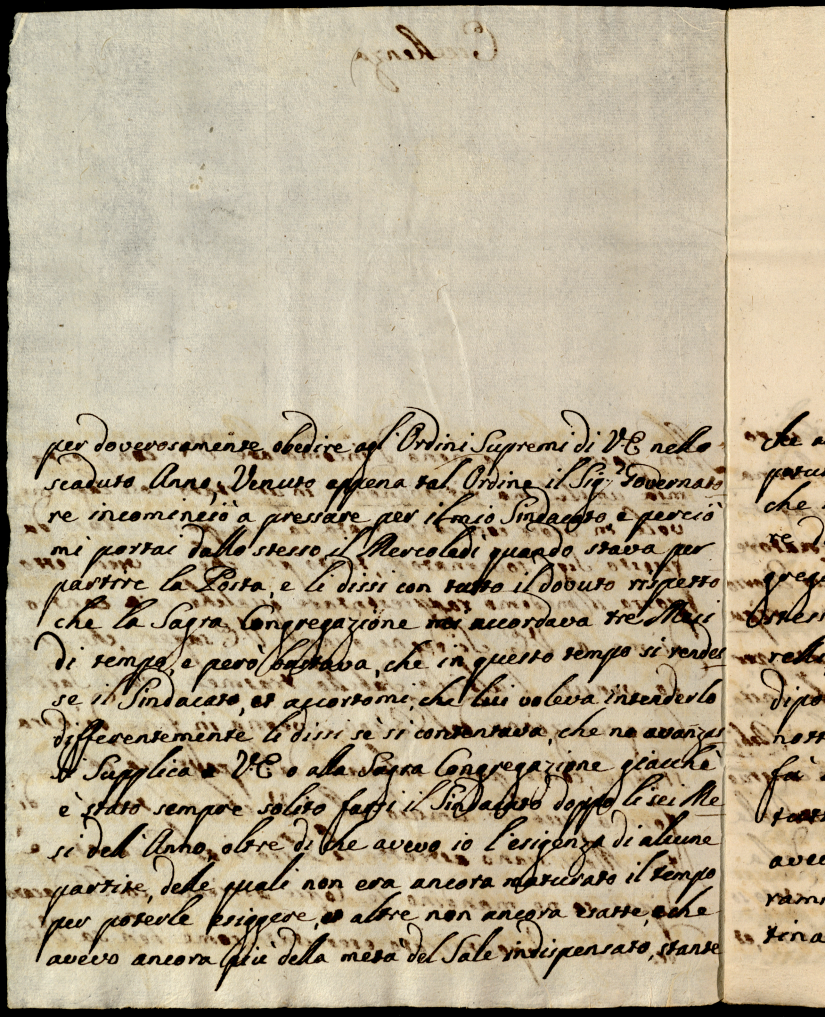 per doverosamente obedire agl'Ordini Supremi di V.E. nello
scaduto Anno, Venuto appena tal Ordine il Sig.r Governato
re incominciò a pressare per il mio Sindacato e perciò
mi portai dallo stesso il Mercoledì quando stava per
partire la Posta, e li dissi con tutto il dovuto rispetto
che la Sagra Congregazione mi accordava tre Mesi
di tempo, e però bastava, che in questo tempo si rendes
se il Sindacato, et accortomi, che lui voleva intenderlo
differentemente li dissi se si contentava, che ne avanzas
si Supplica a V.E. o alla Sagra Congregazione giacchè
è stato sempre solito farsi il Sindacato doppo li sei Me
si dell'Anno, oltre di che avevo io l'esigenza di alcune
partite, delle quali non era ancora maturato il tempo
per poterle esiggere, et altre non ancora esatte, e che
avevo ancora più della metà del Sale indispensato, stante
che